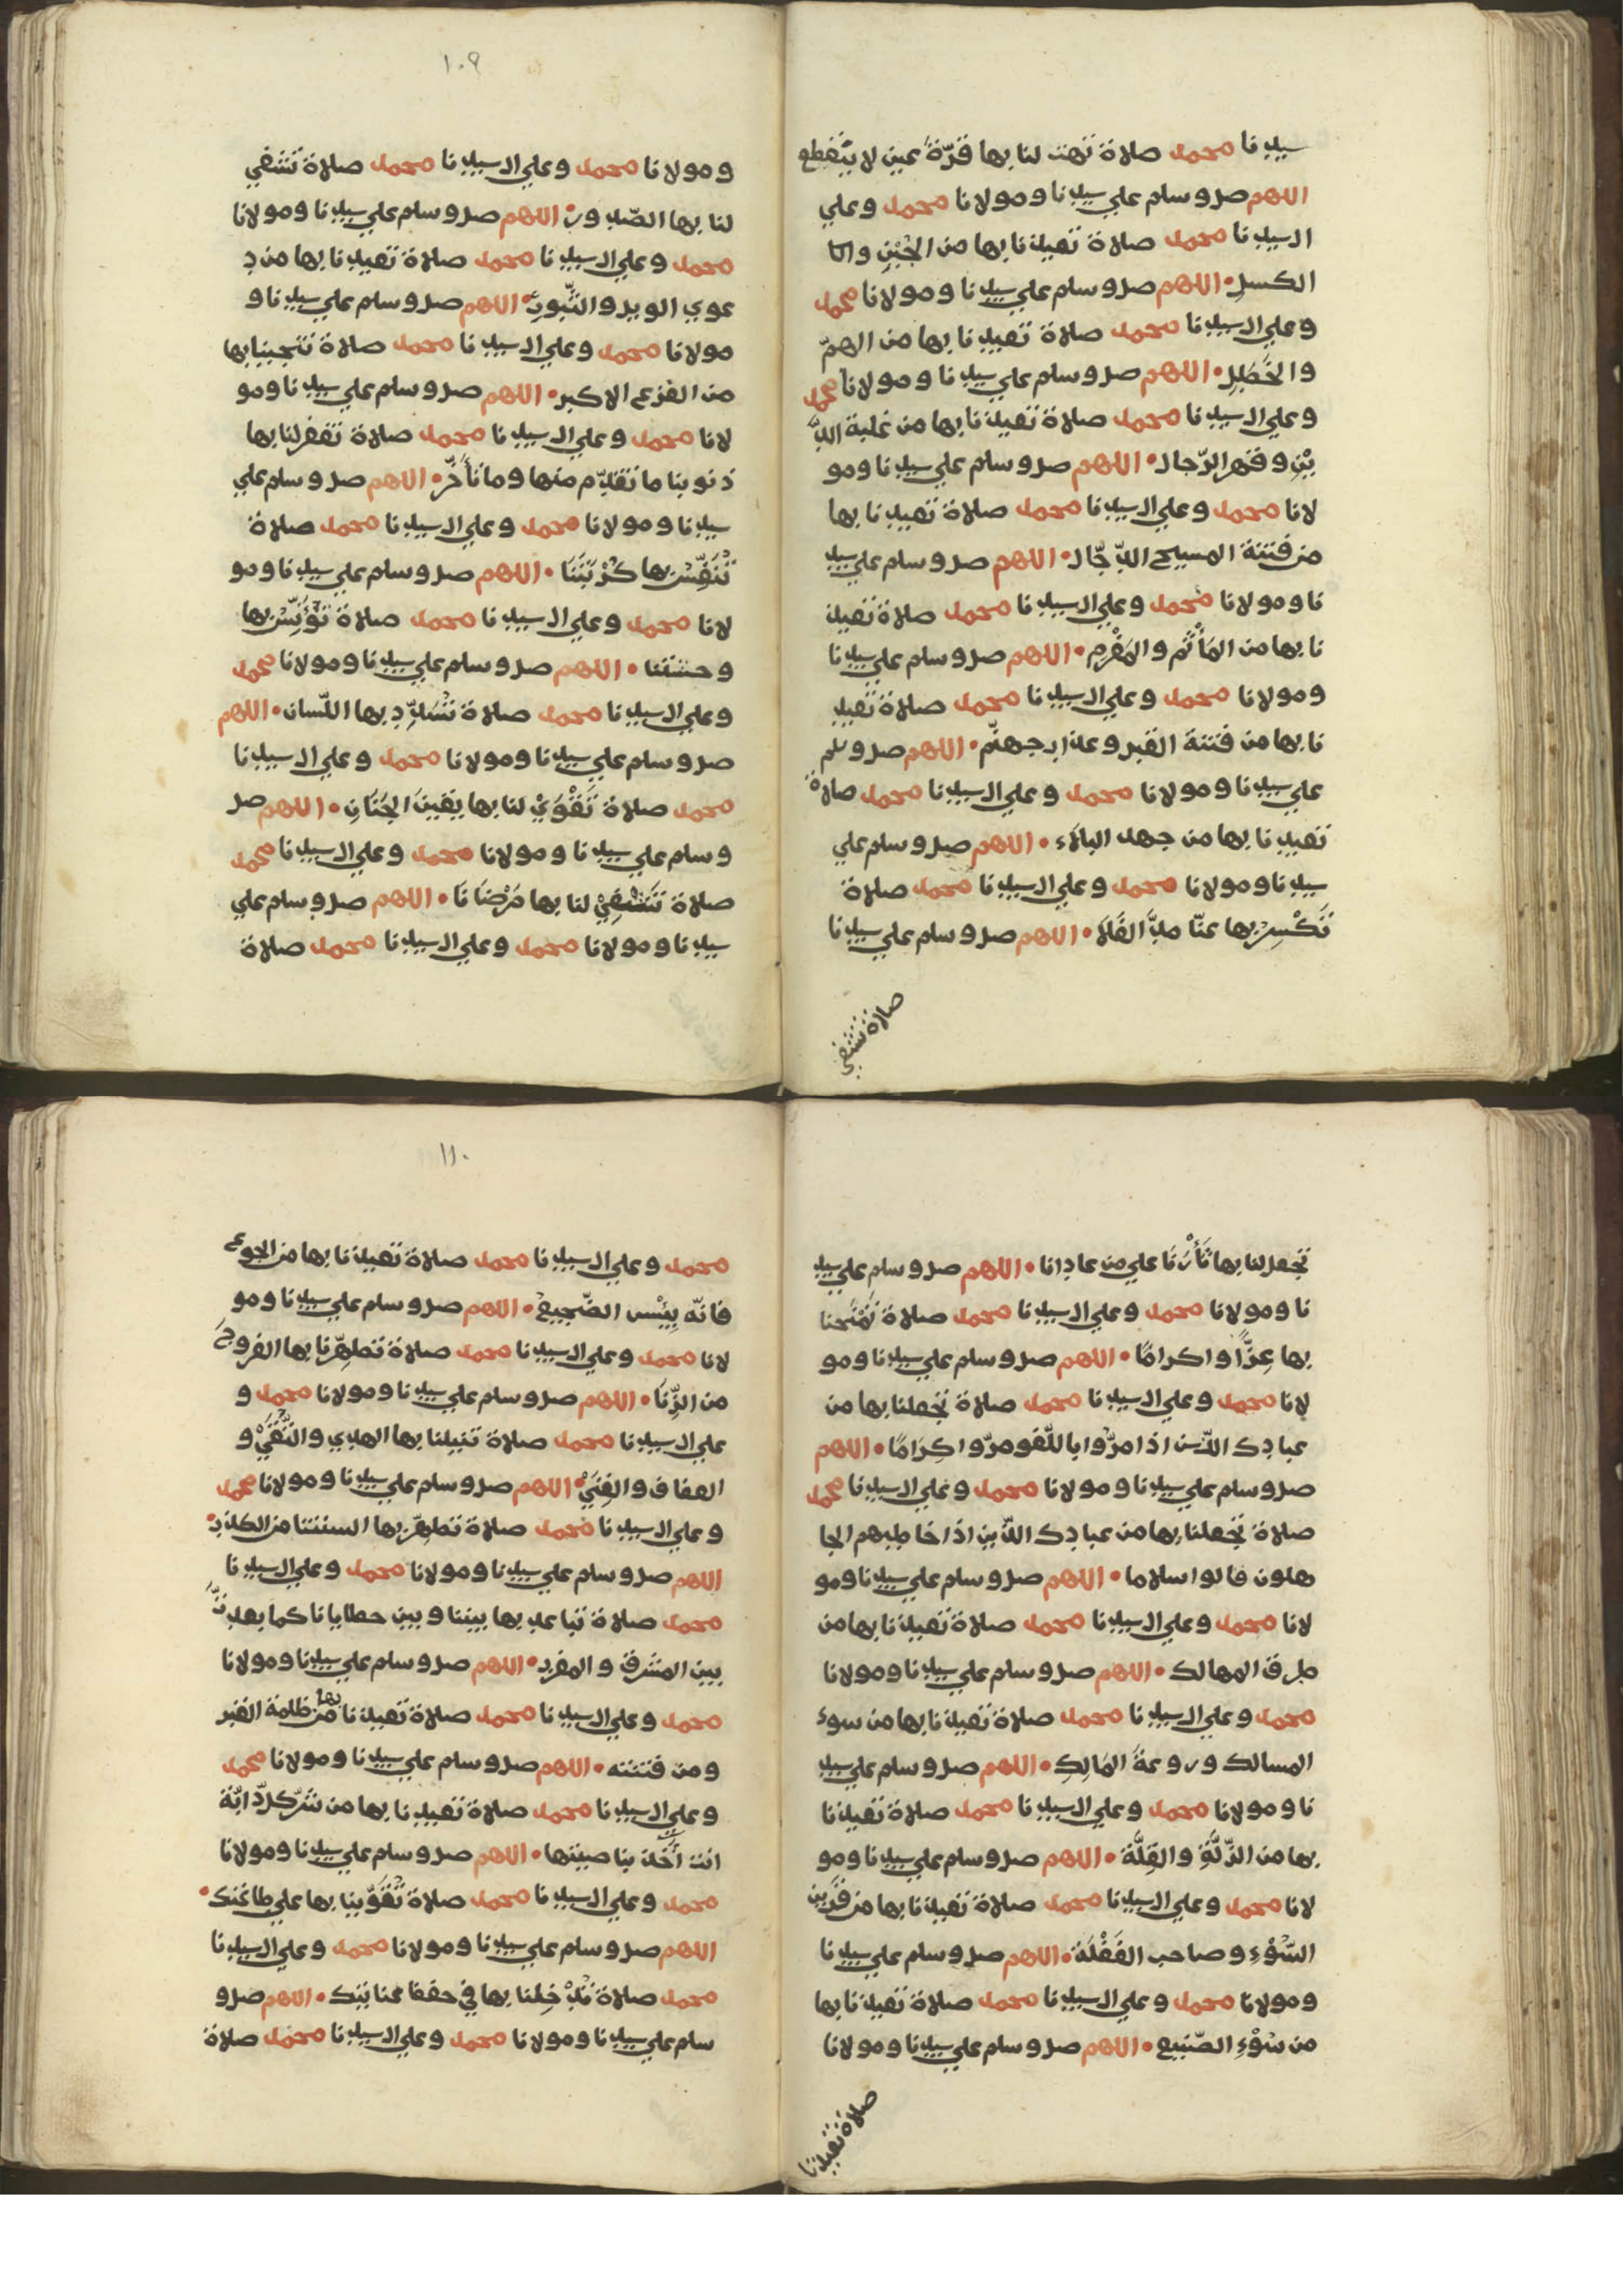 سيدنا محمد صلاة تهب لنا بها قرّة عين لا ينقطع
اللهم صل وسلم علي سيدنا ومولانا محمد وعلي
ال سيدنا محمد صلاة تعيذنا بها من الجُبْنِ و
الكسلِ • اللهم صل وسلم علي سيدنا ومولانا محمد
وعلي ال سيدنا محمد صلاة تعيذنا بها من الهمّ
والخَطَلِ • اللهم صل وسلم علي سيدنا ومولانا محمد
وعلي ال سيدنا محمد صلاة تعيذنا بها من غلبة الدَّ
يْنِ وقهر الرّجال • اللهم صل وسلم علي سيدنا ومو
لانا محمد وعلي ال سيدنا محمد صلاة تعيذنا بها
من فتنة المسيح الدّجّال • اللهم صل وسلم علي سيد
نا ومولانا محمد وعلي ال سيدنا محمد صلاة تعيذ
نا بها من المَأْثَم والمَغْرم • اللهم صل وسلم علي سيدنا
ومولانا محمد وعلي ال سيدنا محمد صلاة تعيذ
نا بها من فتنة القبر وعذاب جهنّم • اللهم صل وسلم
علي سيدنا ومولانا محمد وعلي ال سيدنا محمد صلاة
تعيذنا بها من جهد البلاء • اللهم صل وسلم علي
سيدنا ومولانا محمد وعلي ال سيدنا محمد صلاة
تَكْسِر بها عنّا اللهم صل وسلم علي سيدنا
صلاة تشفي
١٠٩
ومولانا محمد وعلي ال سيدنا محمد صلاة تشفي
لنا بها الصّدور • اللهم صل وسلم علي سيدنا ومولانا
محمد وعلي ال سيدنا محمد صلاة تعيذنا بها من د
عوي الويل والثّبور • اللهم صل وسلم علي سيدنا و
مولانا محمد وعلي ال سيدنا محمد صلاة تنجينا بها
من الفزع الاكبر • اللهم صل وسلم علي سيدنا ومو
لانا محمد وعلي ال سيدنا محمد صلاة تغفر لنا بها
ذنوبنا ما تقدّم منها وما تأخّر • اللهم صل وسلم علي
سيدنا ومولانا محمد وعلي ال سيدنا محمد صلاة
تُنَفِّسُ بها كُرْبَتَنَا • اللهم صل وسلم علي سيدنا ومو
لانا محمد وعلي ال سيدنا محمد صلاة تؤنِّسُ بها
وحشتنا • اللهم صل وسلم علي سيدنا ومولانا محمد
وعلي ال سيدنا محمد صلاة تُسَدِّد بها اللّسان • اللهم
صل وسلم علي سيدنا ومولانا محمد وعلي ال سيدنا
محمد صلاة تَقْوَيْ لنا بها يَقِينَ الجَنَانِ • اللهم صل
وسلم علي سيدنا ومولانا محمد وعلي ال سيدنا محمد
صلاة تَشْفِيْ لنا بها مَرْضَانَا • اللهم صل وسلم علي
سيدنا ومولانا محمد وعلي ال سيدنا محمد صلاة
تجعل لنا بها ثَأْرَنَا علي من عادانا • اللهم صل وسلم علي سيد
نا ومولانا محمد وعلي ال سيدنا محمد صلاة تَمْنَحنا
بها عِزًّا واكرامًا • اللهم صل وسلم علي سيدنا ومو
لانا محمد وعلي ال سيدنا محمد صلاة تجعلنا بها من
عبادك الذين اذا مرّوا باللّغو مرّوا كِرَامًا • اللهم
صل وسلم علي سيدنا ومولانا محمد وعلي ال سيدنا محمد
صلاة تجعلنا بها من عبادك الذين اذا خاطبهم الجا
هلون قالوا سلاما • اللهم صل وسلم علي سيدنا ومو
لانا محمد وعلي ال سيدنا محمد صلاة تعيذنا بها من
طرق المهالك • اللهم صل وسلم علي سيدنا ومولانا
محمد وعلي ال سيدنا محمد صلاة تعيذنا بها من سوء
المسالك وروعة المَالِكِ • اللهم صل وسلم علي سيد
نا ومولانا محمد وعلي ال سيدنا محمد صلاة تعيذنا
بها من الذِّلَّةِ والقِلَّة • اللهم صل وسلم علي سيدنا ومو
لانا محمد وعلي ال سيدنا محمد صلاة تعيذنا بها من قرين
السُّوْءِ وصاحب الغَفْلَة • اللهم صل وسلم علي سيدنا
ومولانا محمد وعلي ال سيدنا محمد صلاة تعيذنا بها
من سُوْءِ الصّنيع • اللهم صل وسلم علي سيدنا ومولانا
صلاة تعيذنا
١١٠
محمد وعلي ال سيدنا محمد صلاة تعيذنا بها من الجوع
فانّه بِئْس الضّجيع • اللهم صل وسلم علي سيدنا ومو
لانا محمد وعلي ال سيدنا محمد صلاة تطهّرنا بها الفروجَ
من الزِّنَا • اللهم صل وسلم علي سيدنا ومولانا محمد و
علي ال سيدنا محمد صلاة تنيلنا بها الهدي والتُّقَيْ و
العفاف والغِنَيْ • اللهم صل وسلم علي سيدنا ومولانا محمد
وعلي ال سيدنا محمد صلاة تطهّر بها السنتنا من الكذب •
اللهم صل وسلم علي سيدنا ومولانا محمد وعلي ال سيدنا
محمد صلاة تباعد بها بيننا وبين خطايانا كما بعدتَّ
بين المشرق والمغرب • اللهم صل وسلم علي سيدنا ومولانا
محمد وعلي ال سيدنا محمد صلاة تعيذنا بها من ظلمة القبر
ومن فتنته • اللهم صل وسلم علي سيدنا ومولانا محمد
وعلي ال سيدنا محمد صلاة تعيذنا بها من شرّ كلّ دابّة
انت آخذ بناصيتها • اللهم صل وسلم علي سيدنا ومولانا
محمد وعلي ال سيدنا محمد صلاة تُقَوّينا بها علي طاعتك •
اللهم صل وسلم علي سيدنا ومولانا محمد وعلي ال سيدنا
محمد صلاة تُدْخِلنا بها في • اللهم صل و
سلم علي سيدنا ومولانا محمد وعلي ال سيدنا محمد صلاة